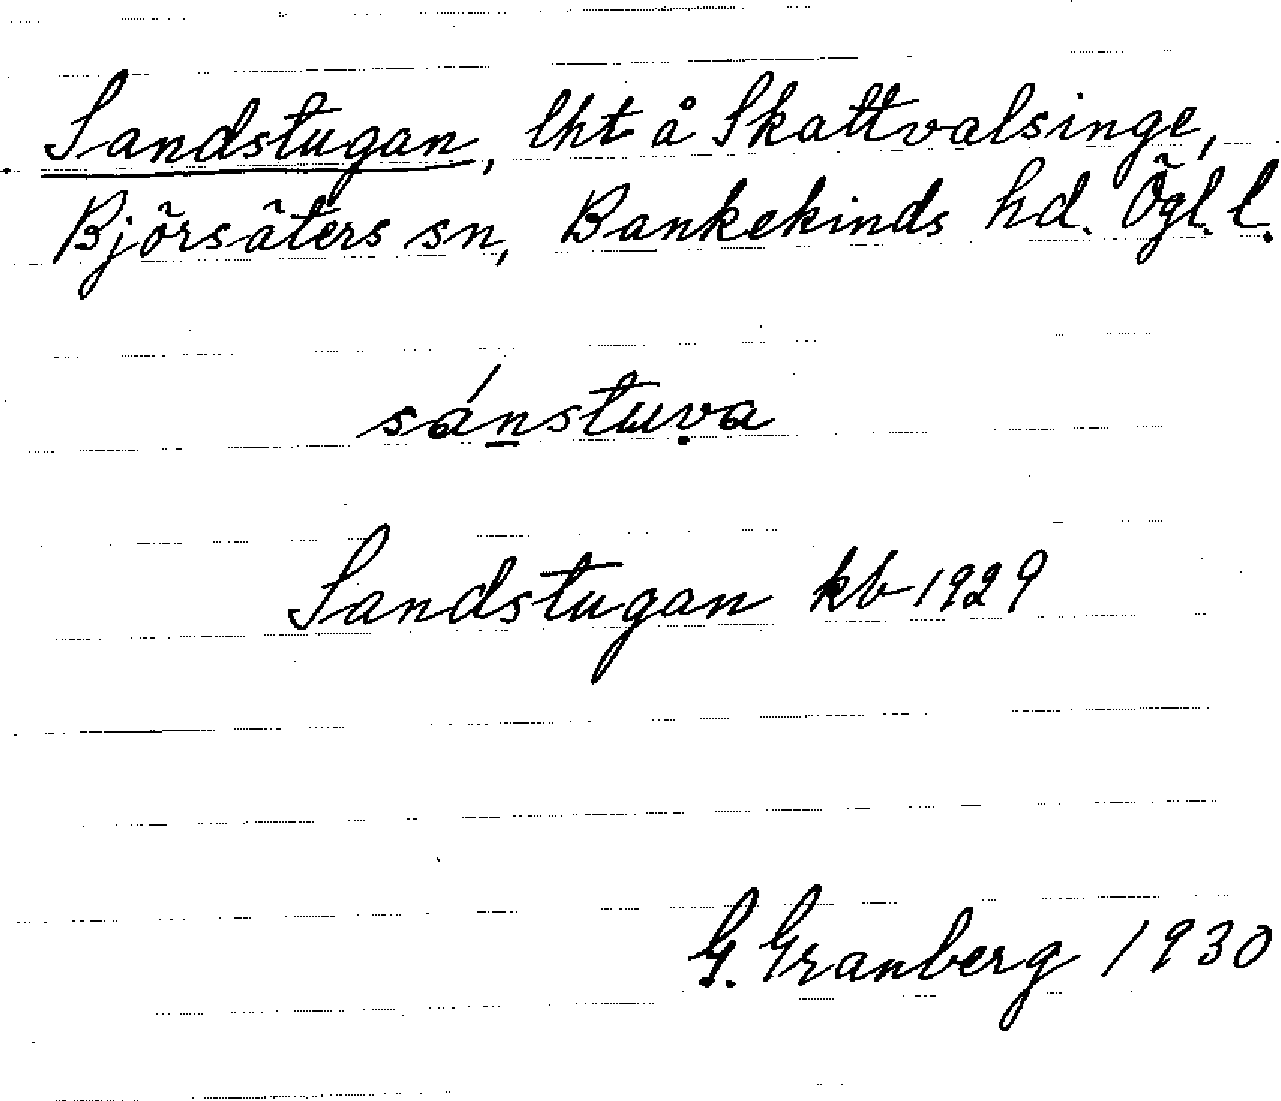 Sandstugan, lht å Skattvalsinge,
Björsäters sn, Bankekinds hd. Ögl. l.
sánstuva
Sandstugan kb 1929
G. Granberg 1930